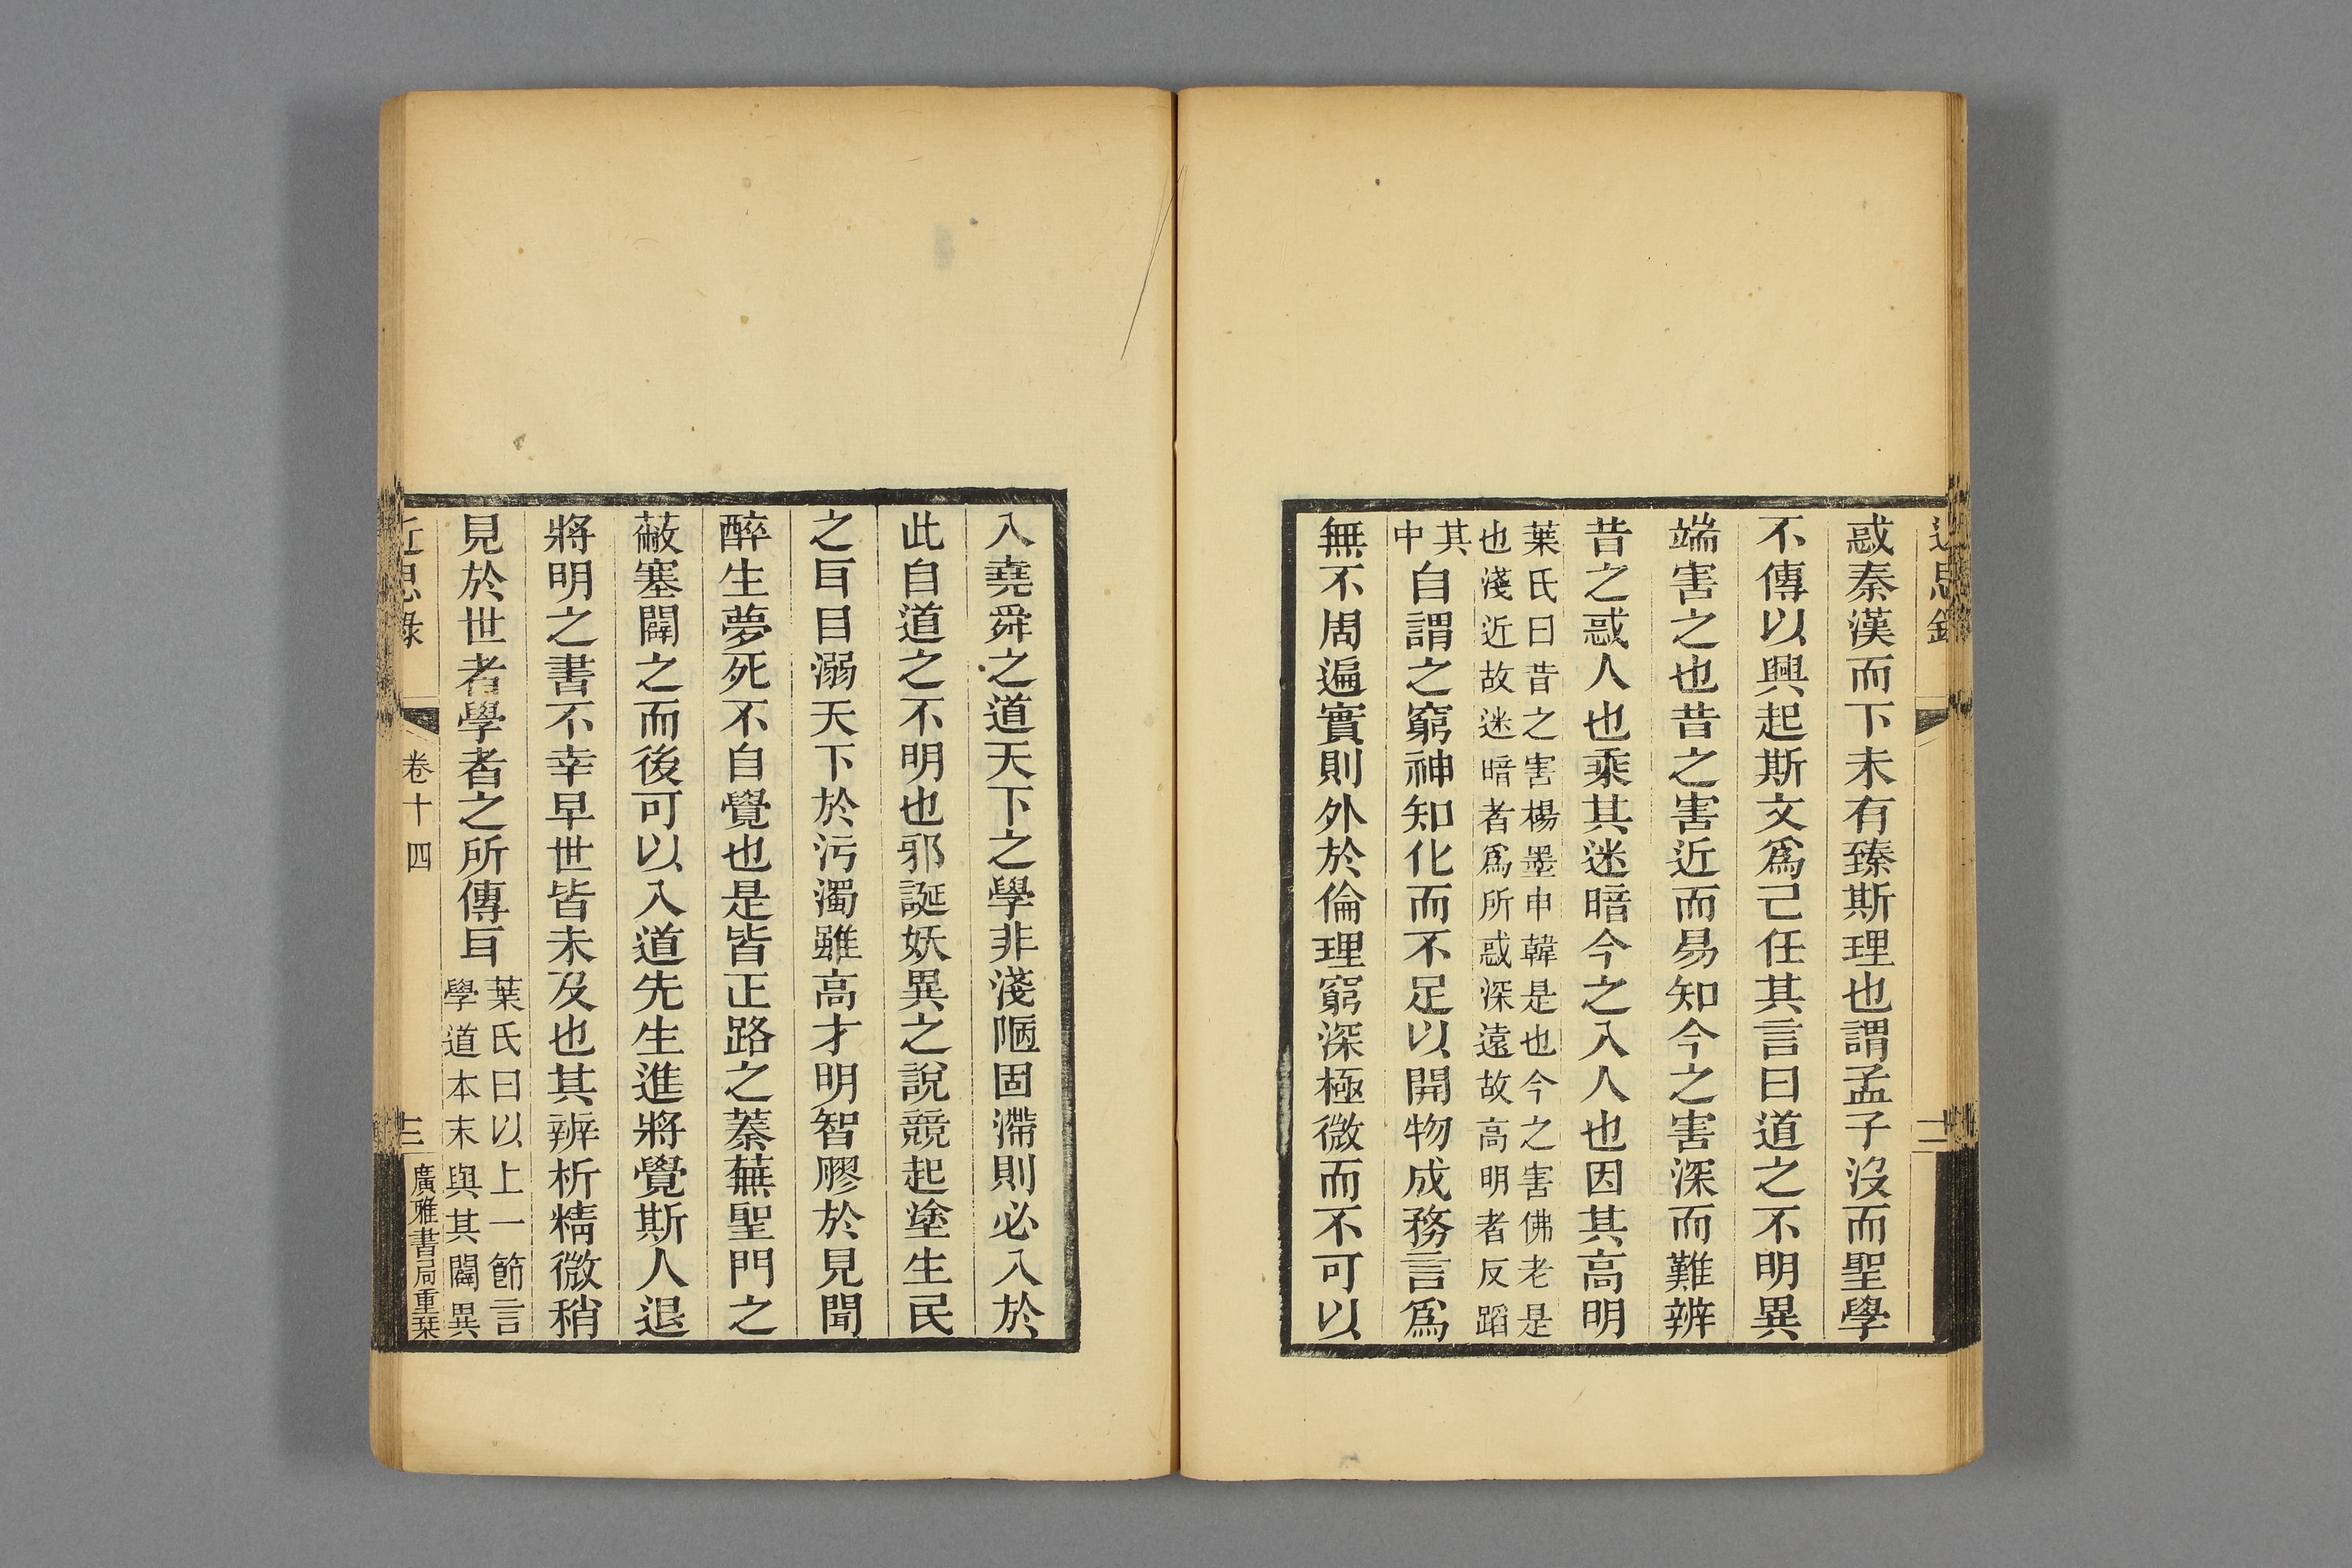 近思錄
三
惑秦漢而下未有臻斯理也謂孟子沒而聖學
不傳以興起斯文爲己任其言曰道之不明異
端害之也昔之害近而易知今之害深而難辨
昔之惑人也乘其迷暗今之入人也因其高明
葉氏曰昔之害楊墨申韓是也今之害佛老是
也淺近故迷暗者爲所惑深遠故高明者反蹈
其
中
自謂之窮神知化而不足以開物成務言爲
無不周遍實則外於倫理窮深極微而不可以
入堯舜之道天下之學非淺陋固滯則必入於
此自道之不明也邪誕妖異之說競起塗生民
之耳目溺天下於污濁雖高才明智膠於見聞
醉生夢死不自覺也是皆正路之蓁蕪聖門之
蔽塞闢之而後可以入道先生進將覺斯人退
將明之書不幸早世皆未及也其辨析精微稍
見於世者學者之所傳耳
葉氏曰以上一節言
學道本末與其闢異
近思錄
卷十四
三
廣雅書局重栞